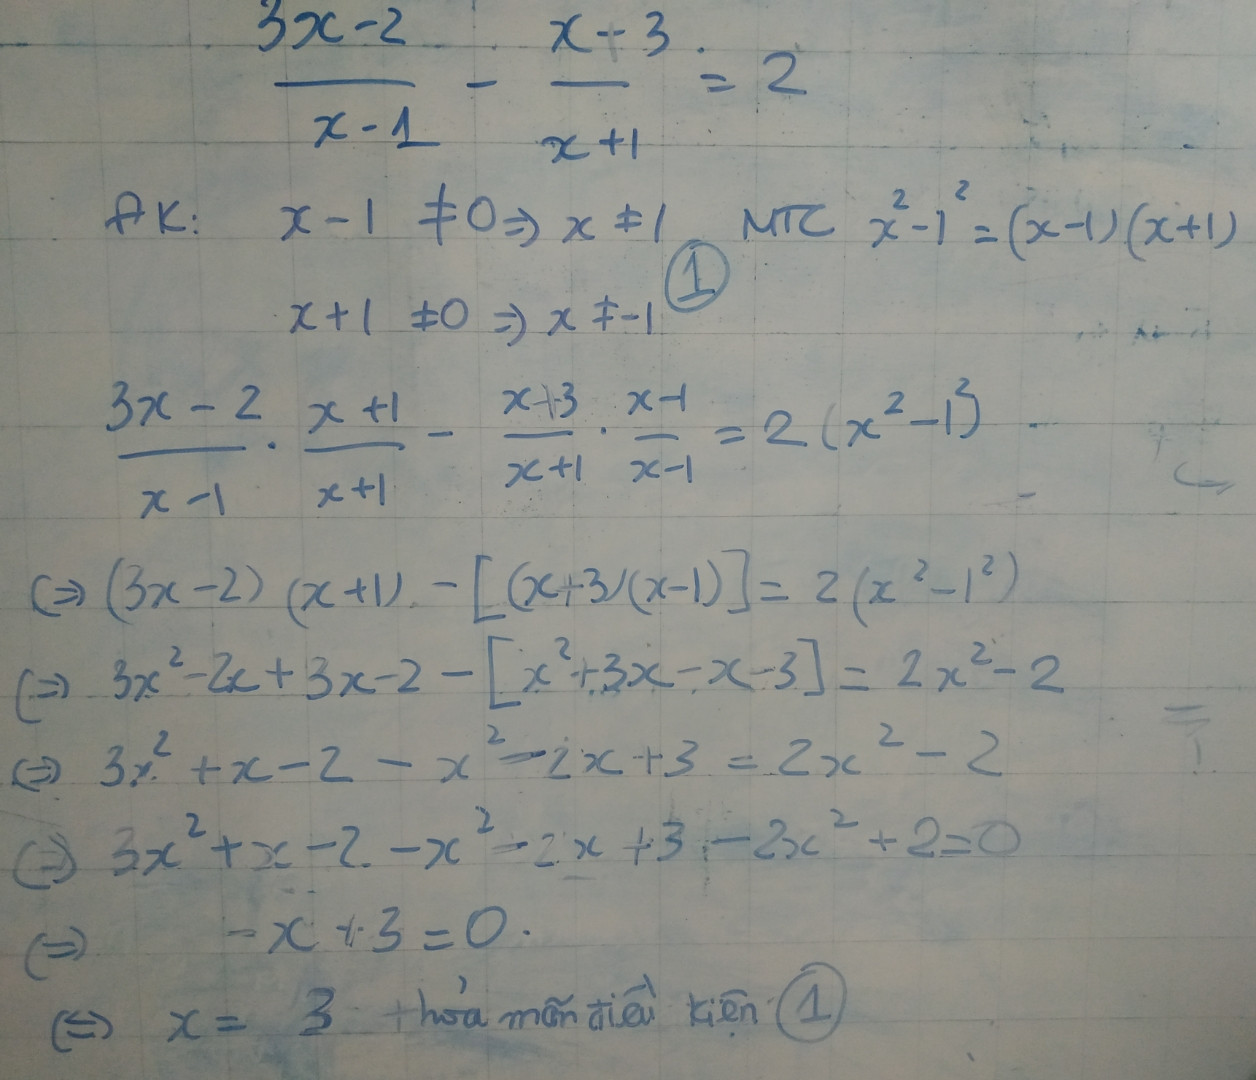 3x-2/x-1 - x+3/x+1 = 2
ĐK: x-1 ≠0 => x ≠ 1 MTC x²-1² = (x-1)(x+1)
x+1 ≠0 => x ≠ -1 ①
3x-2/x-1 . x+1/x+1 - x+3/x+1 . x-1/x-1 = 2(x²-1²)
<=> (3x-2)(x+1) - [(x+3)(x-1)] = 2(x²-1²)
<=> 3x²-2x+3x-2 - [x²+3x-x-3] = 2x²-2
<=> 3x²+x-2 - x²-2x+3 = 2x²-2
<=> 3x²+x-2-x²-2x+3-2x²+2=0
<=> -x+3=0.
<=> x = 3 thỏa mãn điều kiện ①